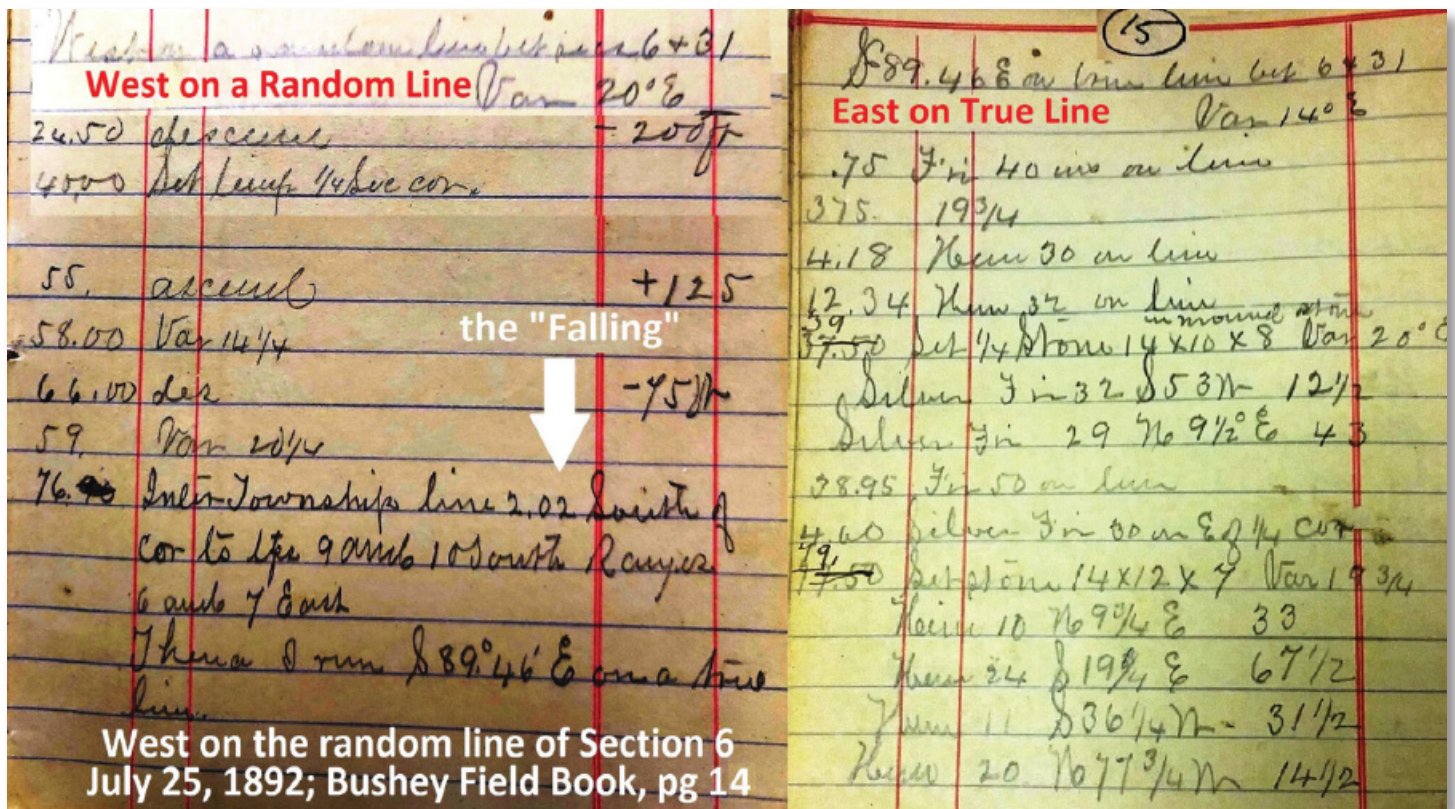 West on a random line bet secs 6 + 31
West on a Random Line
Var 20°E
24.50 descend - 200 ft
40.00 Set temp 1/4 Sec cor.
55. ascend +125
the "Falling"
58.00 Var 14 1/4
66.00 des -75
59. Var 20 1/4
76. Inter Township line 2.02 South of
cor to tps 9 and 10 South Ranges
6 and 7 East
Thence I run S 89°46' E on a true
line.
West on the random line of Section 6
July 25, 1892; Bushey Field Book, pg 14
15
S 89.46 E on true line bet 6 & 31
East on True Line
Var 14° E
.75 Fir 40 ins on line
375. 19 3/4
4.18 Hem 30 on line
12.34 Hem 32 on line
in mound stone
39
37.50 Set 1/4 Stone 14 x 10 x 8 Var 20° E
Silver Fir 32 S 53 W 12 1/2
Silver Fir 29 N 9 1/2° E 43
38.95 Fir 50 on line
4.60 Silver Fir 30 on E of 1/4 cor
79.
77.50 Set stone 14 x 12 x 7 Var 19 3/4
Hem 10 N 9 3/4 E 33
Hem 24 S 19 3/4 E 67 1/2
Hem 11 S 36 1/4 W - 31 1/2
Hem 20 N 77 3/4 W 14 1/2